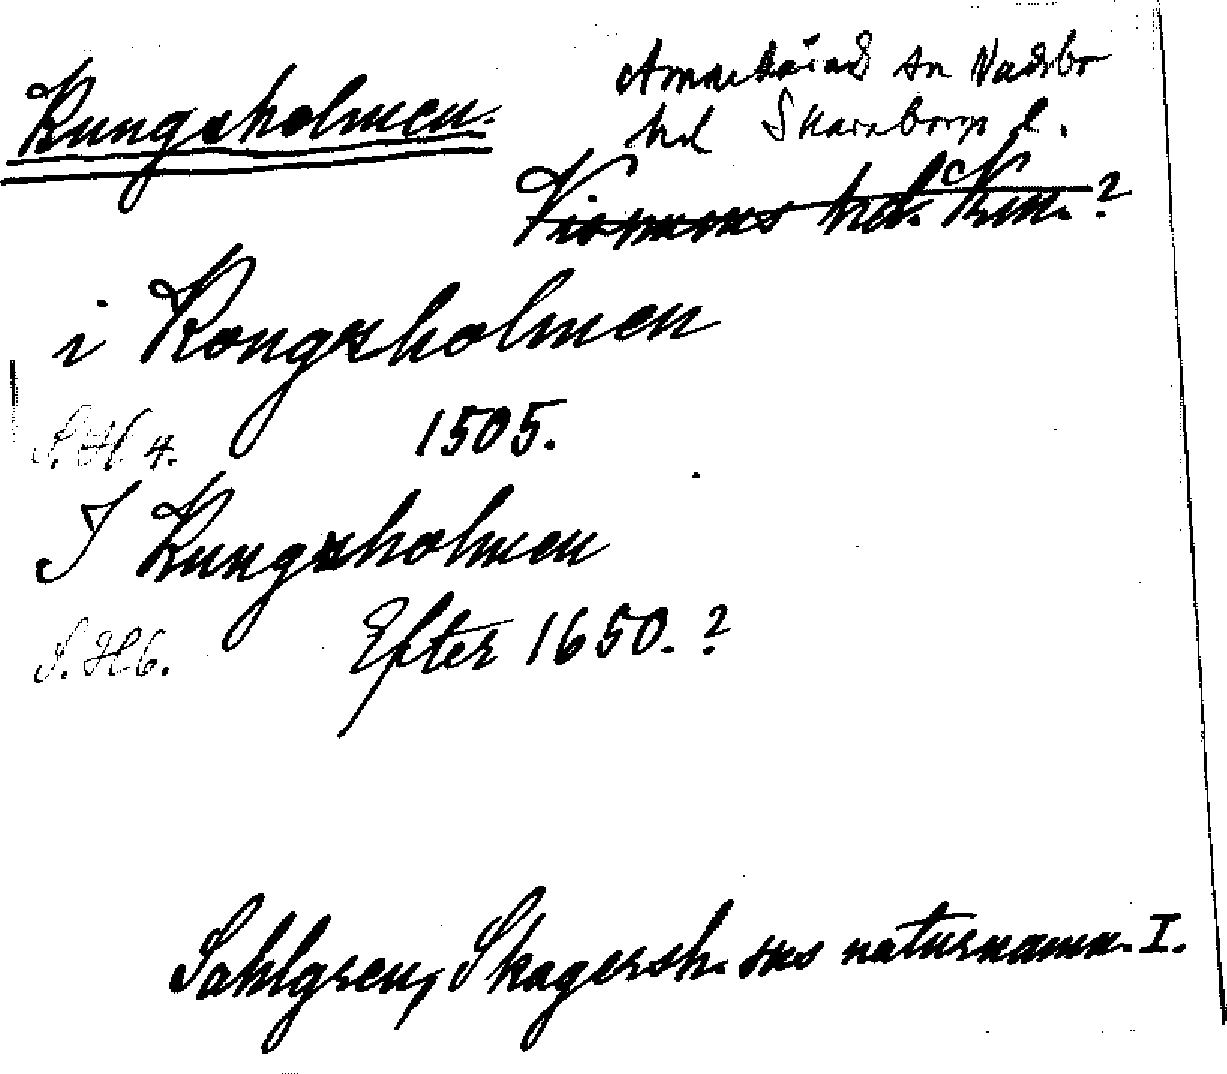 Kungsholmen.
Amnehärad sn Vadsbo
hd Skaraborgs l.
Visnums hd. Krm.?
i Kongsholmen
S.H 4. 1505.
I Kungsholmen
S.H 6. Efter 1650.?
Sahlgren, Skagersh. sks naturnamn. I.